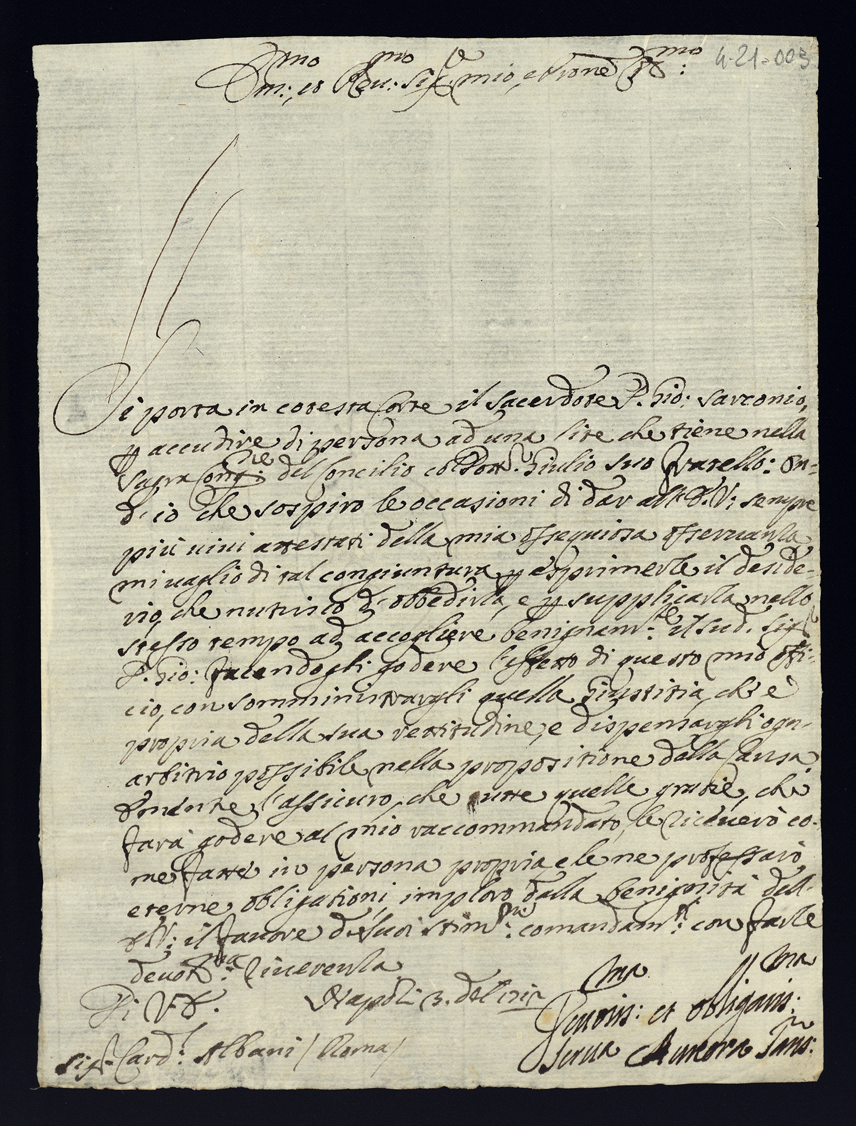 Em:mo, et Reu:mo Sig.re mio, e Prone Col:mo
4-21-003
Si porta in cotesta Corte il Sacerdote D. Gio: Sarconio,
p accudire di persona ad una lite che tiene nella
Sagra Cong:ne del Concilio col Dott.r Giulio suo fratello: On-
d'io che sospiro le occasioni di dar all'E.V: sempre
più viui attestati della mia ossequiosa osseruanza
mi vaglio di tal congiuntura p esprimerle il deside-
rio, che nutrisco d'obbedirla, e p supplicarla nello
stesso tempo ad accogliere benignam.te il sud.o Sig.r
D. Gio: facendogli godere l'effetto di questo mio offi-
cio, con somministrargli quella Giustitia, ch'è
propria della sua rettitudine, e dispensargli ogn'
arbitrio possibile nella propositione della Causa
mentre l'assicuro, che tutte quelle gratie, che
farà godere al mio raccommandato, le riceuerò co-
me fatte in persona propria, e le ne professarò
eterne obligationi, imploro dalla benignità dell'
E.V: il fauore de suoi stim.mi comandam.ti con farle
deuot.ma riuerenza
Di V.E. Napoli 3. del
Deuotis:ma et obligatis:ma
Serua Aurora Sans:
Sig.r Card: Albani / Roma /